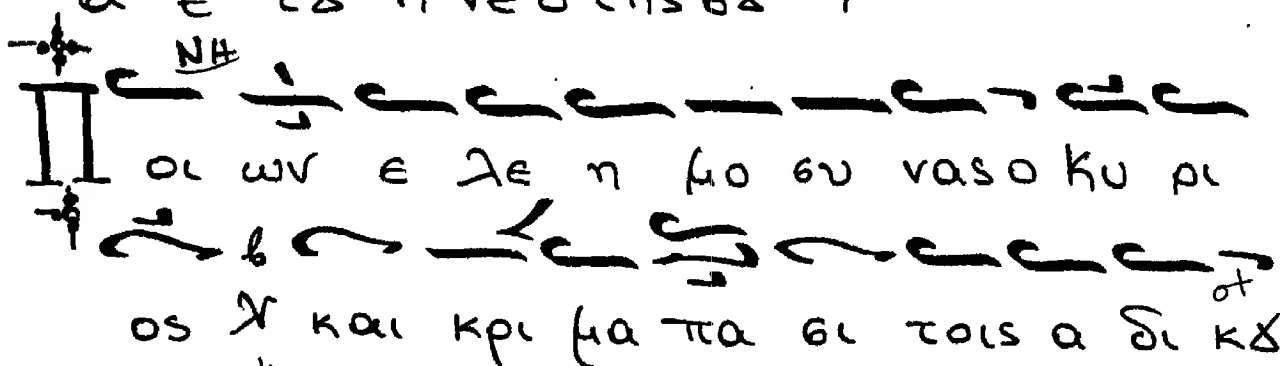 ΝΗ
Ποι ων ε λε η μο συ νας ο Κυ ρι
ος και κρι μα πα σι τοις α δι κȣ